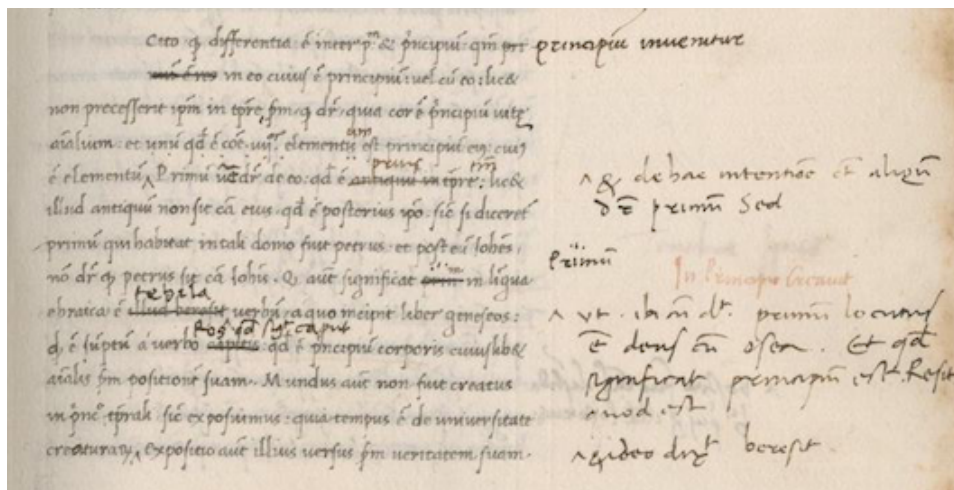 Cito q differentia ē inter pm & prīcipiū: qm pri principiū invenitur
in eo cuius ē principiū: vel cū eo: lic&
non precesserit ipm in tpre pm. q dr. quia cor ē prīcipiū vite
aialium. et unū qd ē cōe. elementū est principiū eius cui
ē elementū. Primū dr de eo: qd ē antiquū in tpre: lic&
prius tm
illud antiquū non sit cā eius. qd ē posterius ipo. sic si diceret
primū qui habitat in tali domo fuit petrus. et post eū Iohes.
nō dr q petrus sit cā Iohis. Q aut significat in līgua
tehila
ebraica ē illud beresit verbū. a quo incipit liber geneseos:
Ros qd caput
ē sūptū a verbo capitis: qd ē prīcipiū corporis cuiuslib&
aialis pm positionē suam. Mundus aut non fuit creatus
in prīnc. tprali sic exposuimus: quia tempus ē de universitate
creaturarum. expositio aut illius versus pm veritatem suam.
& de hac intentiōe ē aliqn
primū Sed
Primū
In Principio Creavit
ut. primū locutus
ē deus cū osea. Et qd
significat principiū est. Resit
quod est
& ideo dixt beresit.